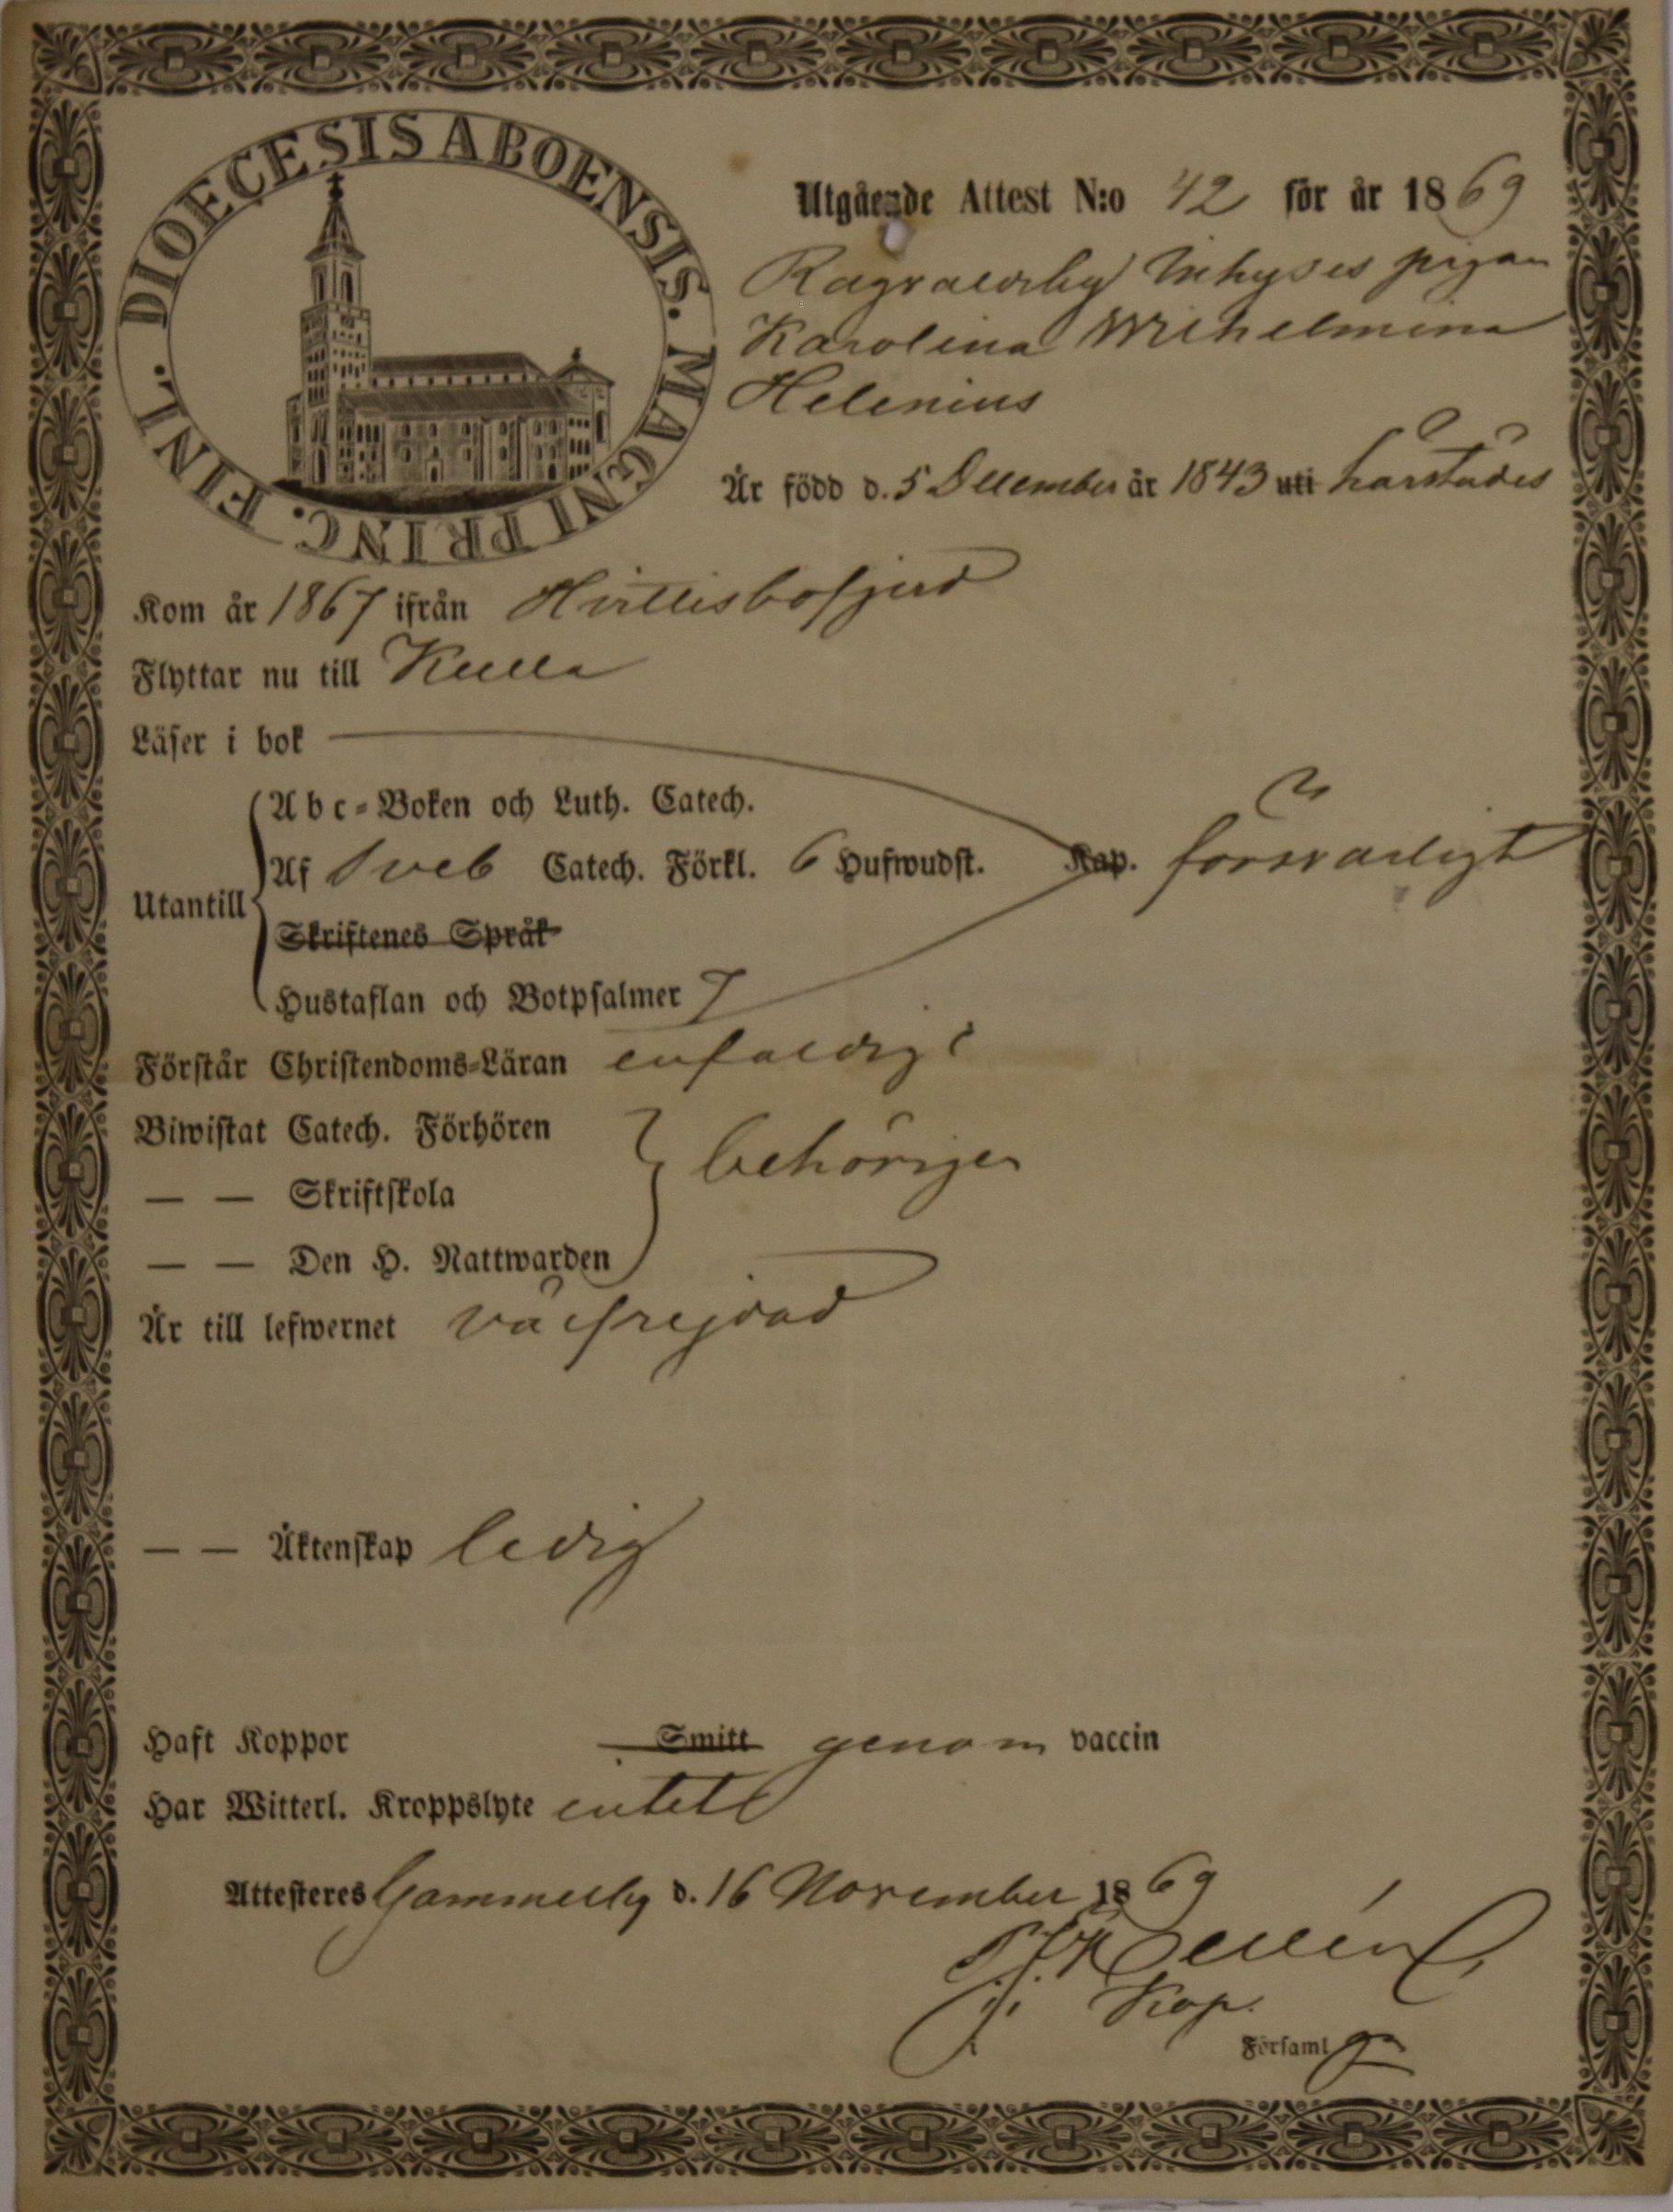 DIOECESIS ABOENSIS. MAGNI PRINC. FINL.
Utgående Attest N:o 42 för år 1869
Ragvaldsby Inhyses pigan
Karolina Wilhelmina
Helenius
Är född d. 5 December år 1843 uti härstädes
Kom år 1867 ifrån Hvittisbofjerd
Flyttar nu till Kulla
Läser i bok
Abc-Boken och Luth. Catech.
Utantill Af Sveb Catech. Förkl. 6 Hufwudst. Kap. försvarligt
Skriftenes Språk
Hustaflan och Botpsalmer 7
Förstår Christendoms-Läran enfaldigt
Biwistat Catech. Förhören
behörigen
— — Skriftskola
— — Den H. Nattwarden
Är till lefwernet välfrejdad
— — Äktenskap ledig
Haft Koppor Smitt genom vaccin
Har Witterl. Kroppslyte intet
Attesteres Gammelby d. 16 November 1869
Kap.
Församl gn